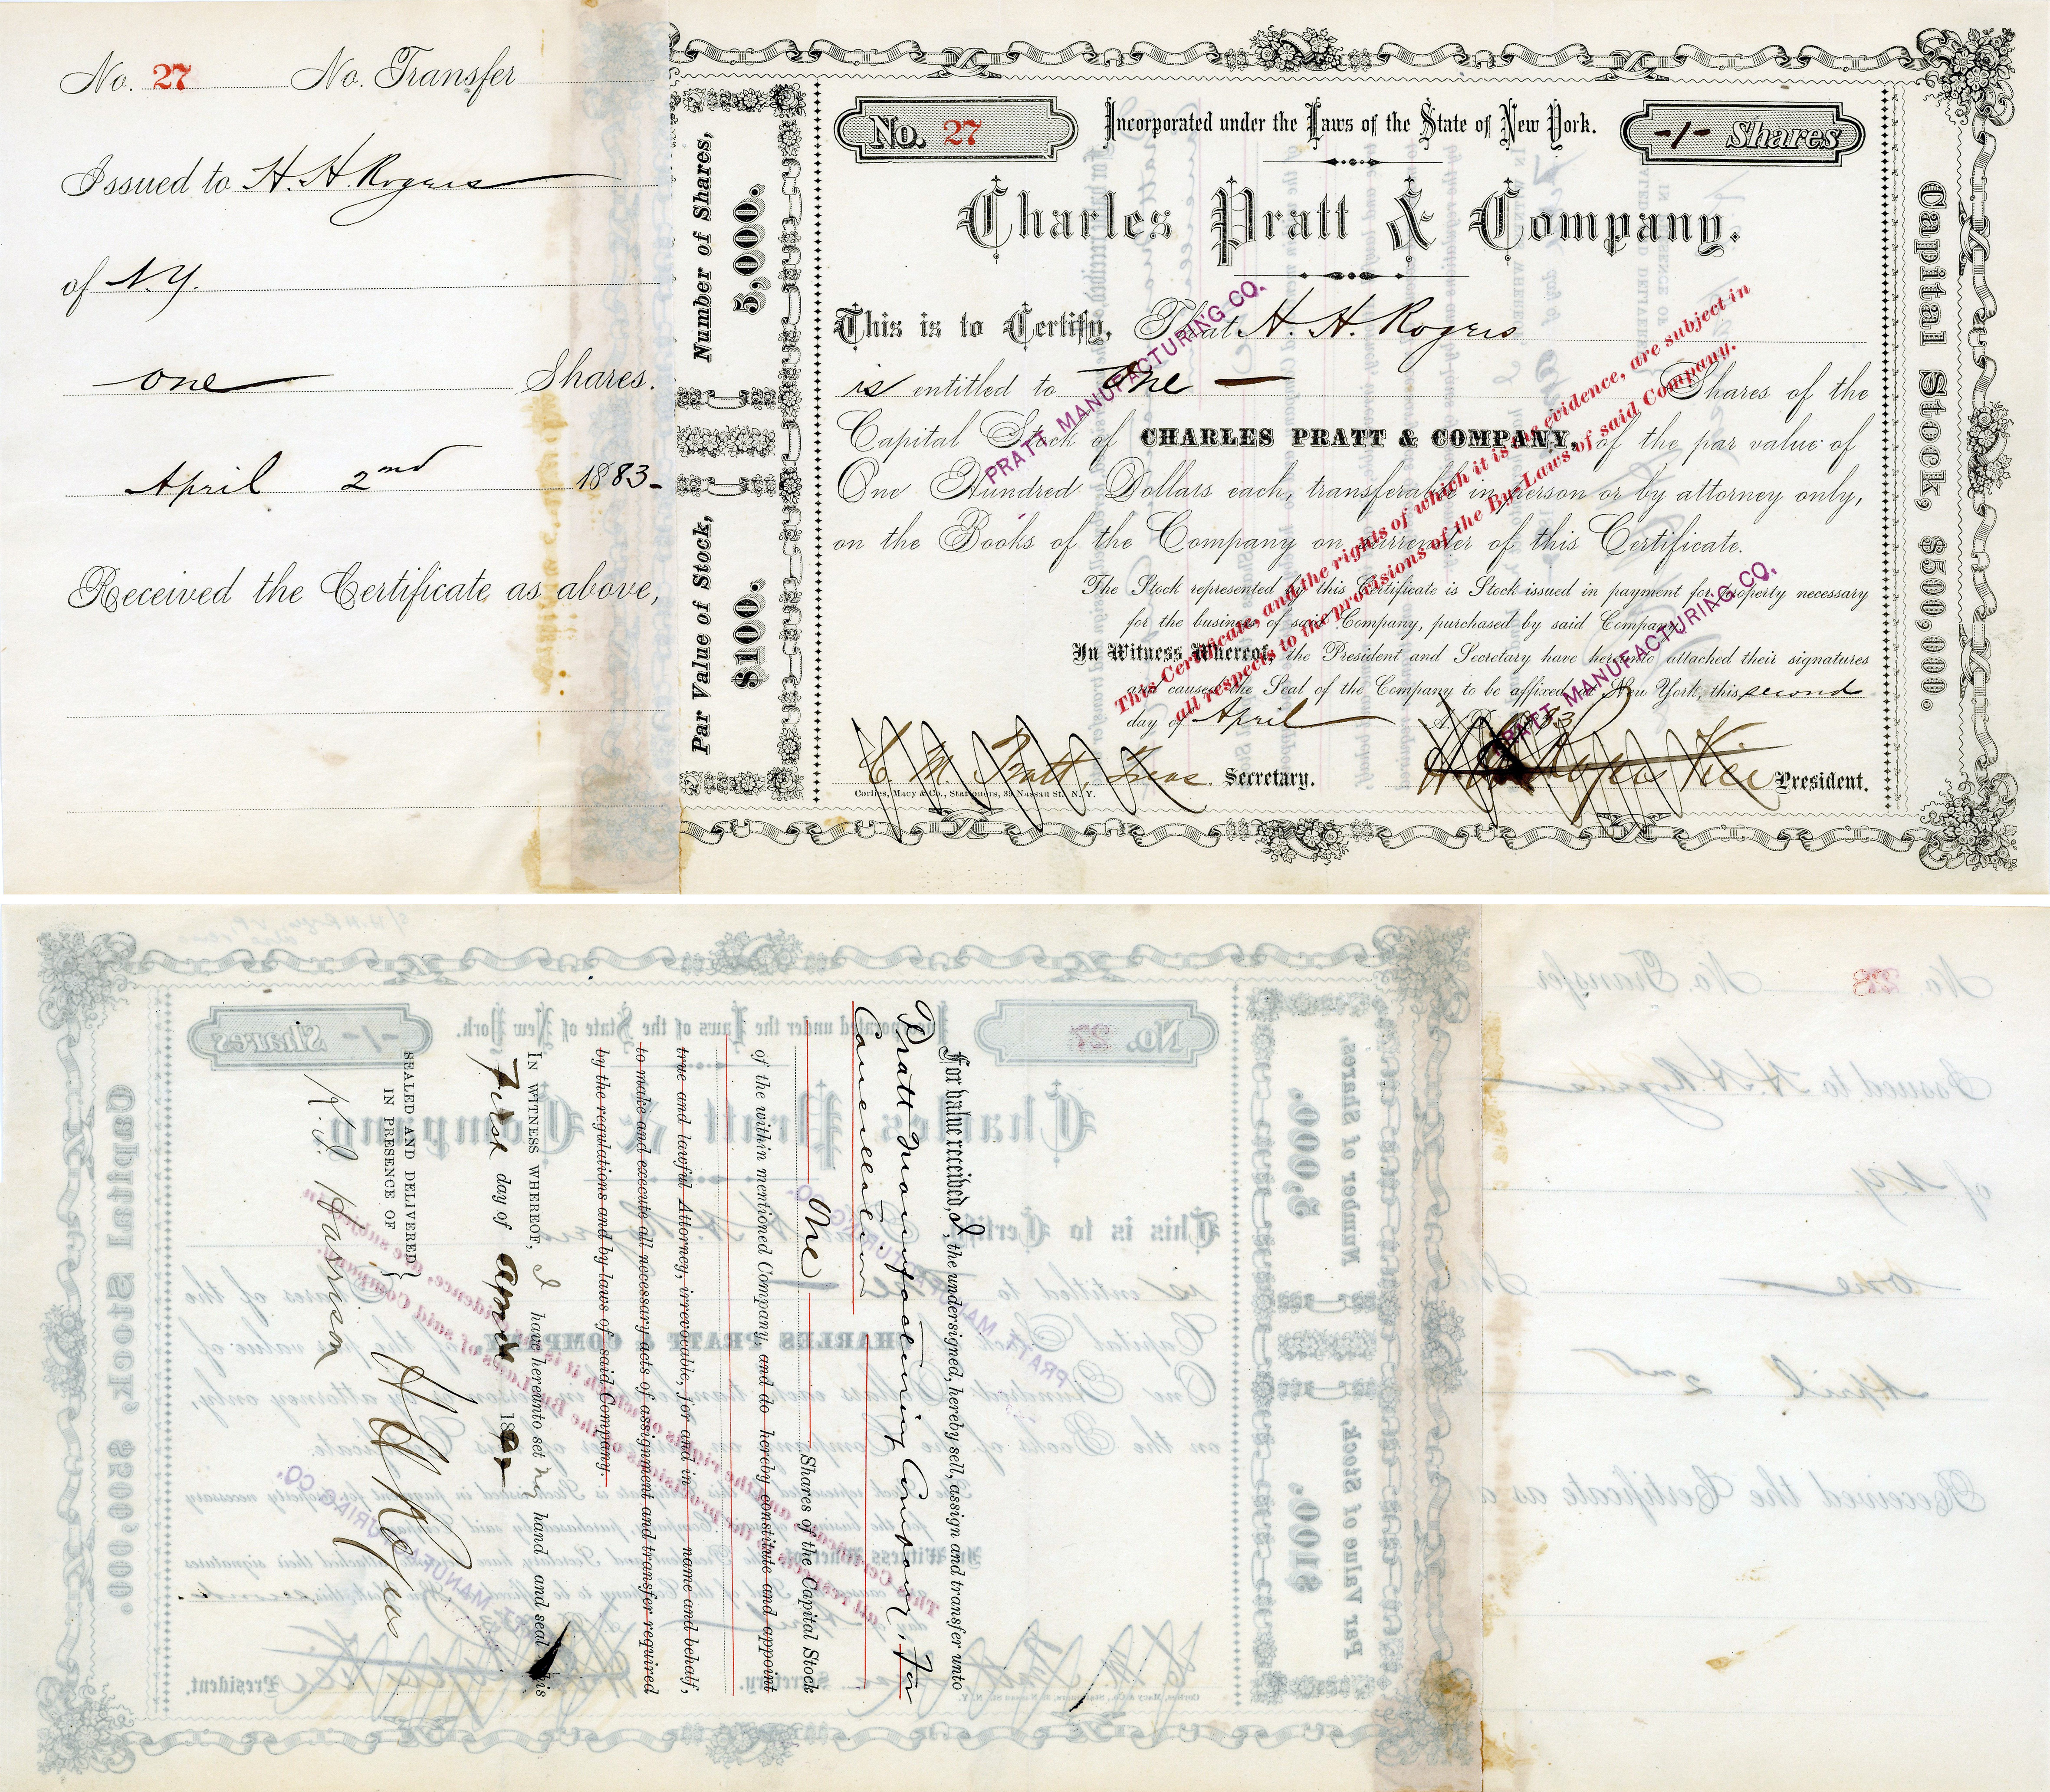 No. 27 No. Transfer
Issued to H. H. Rogers
of N.Y.
one Shares.
April 2nd 1883-
Received the Certificate as above,
Number of Shares,
5,000.
Par Value of Stock,
$100.
No. 27
Incorporated under the Laws of the State of New York.
-1- Shares
Charles Pratt & Company.
This is to Certify, That H. H. Rogers
is entitled to One Shares of the
Capital Stock of CHARLES PRATT & COMPANY, of the par value of
One Hundred Dollars each, transferable in person or by attorney only,
on the Books of the Company on surrender of this Certificate.
The Stock represented by this Certificate is Stock issued in payment for property necessary
for the business of said Company, purchased by said Company.
In Witness Whereof, the President and Secretary have hereunto attached their signatures
and caused the Seal of the Company to be affixed at New York, this second
day of April A.D. 1883
C. M. Pratt Treas Secretary.
H H Rogers Vice President.
Corlies, Macy & Co., Stationers, 39 Nassau St. N. Y.
Capital Stock, $500,000.
PRATT MANUFACTURING CO.
This Certificate, and the rights of which it is the evidence, are subject in
all respects to the provisions of the By-Laws of said Company.
PRATT MANUFACTURING CO.
For value received, I, the undersigned, hereby sell, assign and transfer unto
Pratt Manufacturing Company, for
Cancellation
One Shares of the Capital Stock
of the within mentioned Company, and do hereby constitute and appoint
true and lawful Attorney, irrevocable, for and in name and behalf,
to make and execute all necessary acts of assignment and transfer required
by the regulations and by-laws of said Company.
IN WITNESS WHEREOF, I have hereunto set my hand and seal this
First day of April 1892
SEALED AND DELIVERED
IN PRESENCE OF
K. I. Harrison
H H Rogers